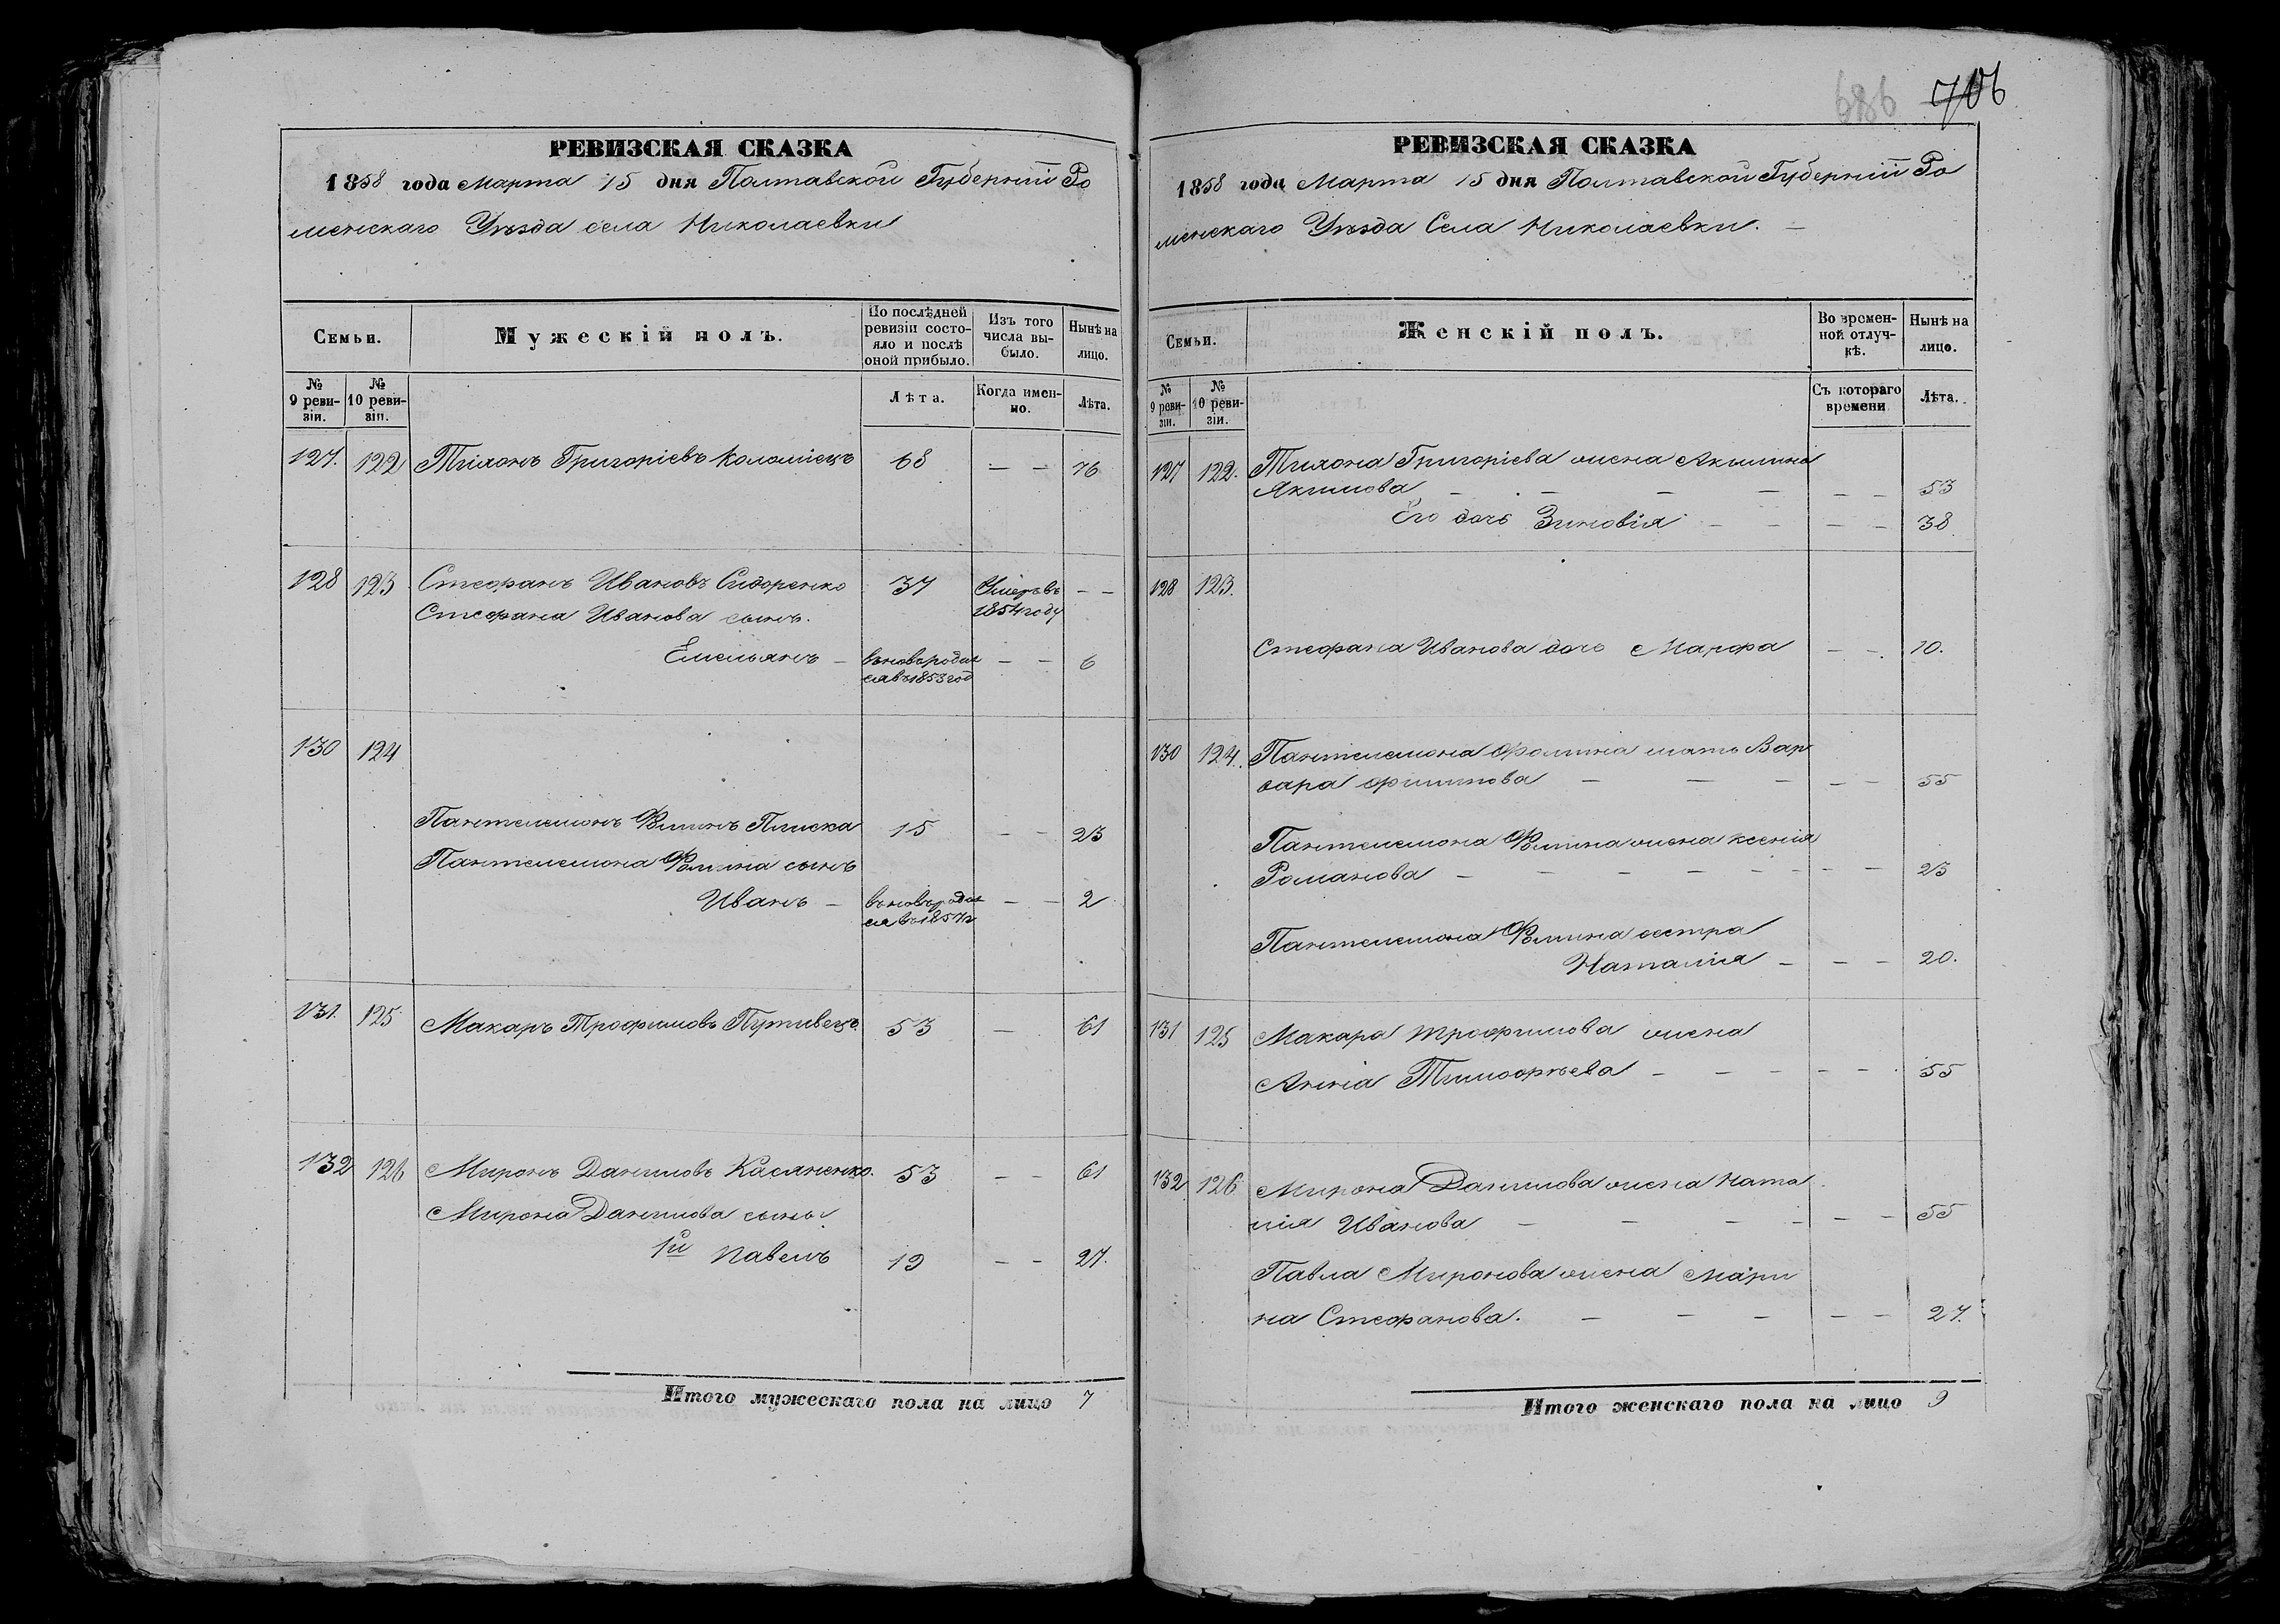 686 706
РЕВИЗСКАЯ СКАЗКА
1858 года Марта 15 дня Полтавской Губерніи Ро
менскаго Уѣзда села Николаевки
Семьи.
Мужескій полъ.
По послѣдней ревизіи состояло и послѣ оной прибыло.
Изъ того числа выбыло.
Нынѣ на лицо.
№ 9 ревизіи.
№ 10 ревизіи.
Лѣта.
Когда именно.
Лѣта.
127. 122 Тихонъ Григоріевъ Коломіецъ 68 — — 76
128 123 Стефанъ Ивановъ Сидоренко 37 Умеръ въ 1854 году — —
Стефана Иванова сынъ.
Емельянъ — вновь родил ся въ 1853 год — — 6
130 124
Пантелемонъ Фоминъ Плиска 15 — — 23
Пантелемона Фомина сынъ
Иванъ — вновь родил ся въ 1857 г — — 2
131. 125 Макаръ Трофимовъ Путивецъ. 53 — 61
132 126 Миронъ Даниловъ Касяненко. 53 — — 61
Мирона Данилова сынъ
1й Павелъ 19 — — 27.
Итого мужескаго пола на лицо 7
РЕВИЗСКАЯ СКАЗКА
1858 года Марта 15 дня Полтавской Губерніи Ро
менскаго Уѣзда Села Николаевки. —
Семьи.
Женскій полъ.
Во временной отлучкѣ.
Нынѣ на лицо.
№ 9 ревизіи.
№ 10 ревизіи.
Съ котораго времени
Лѣта.
127 122. Тихона Григоріева жена Акилина
Якимова — — — — — — 53
Его дочь Зиновія — — — — 38
128 123.
Стефана Иванова дочь Марфа — — 10.
130 124. Пантелемона Фомина мать Вар
вара Филипова — — — — — 55
Пантелемона Фомина жена Ксенія
Романова — — — — — — — — 23
Пантелемона Фомина сестра
Наталія — — — 20.
131 125 Макара Трофимова жена
Анна Тимофѣева — — — — — 55
132 126 Мирона Данилова жена Ната
лія Иванова — — — — — — 55
Павла Миронова жена Мари
на Стефанова. — — — — — 27.
Итого женскаго пола на лицо 9